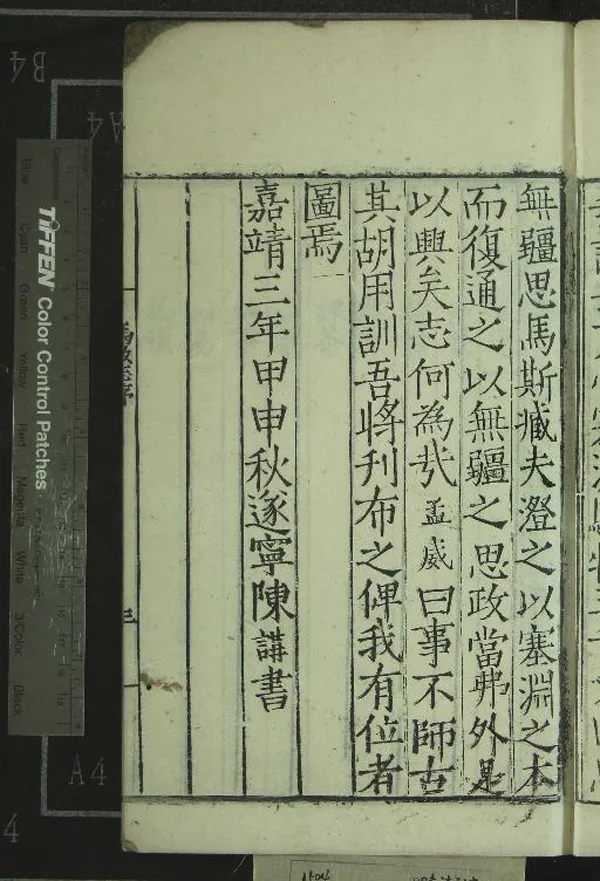 無疆思馬斯臧夫澄之以塞淵之本
而復通之以無疆之思政當弗外是
以興矣志何為哉孟威曰事不師古
其胡用訓吾將刊布之俾我有位者
圖焉
嘉靖三年甲申秋遂寧陳講書
三
TIFFEN Color Control Patches
Blue Cyan Green Yellow Red Magenta White 3/Color Black
B4
A4
A4
4